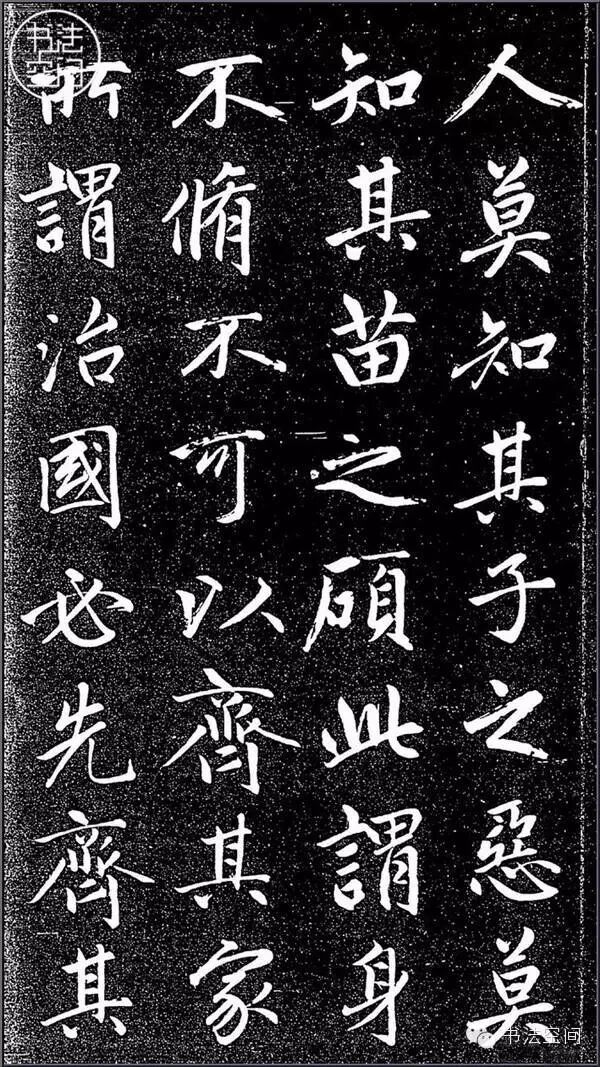 人莫知其子之惡莫
知其苗之碩此謂身
不脩不可以齊其家
所謂治國必先齊其
书法空间
书法空间